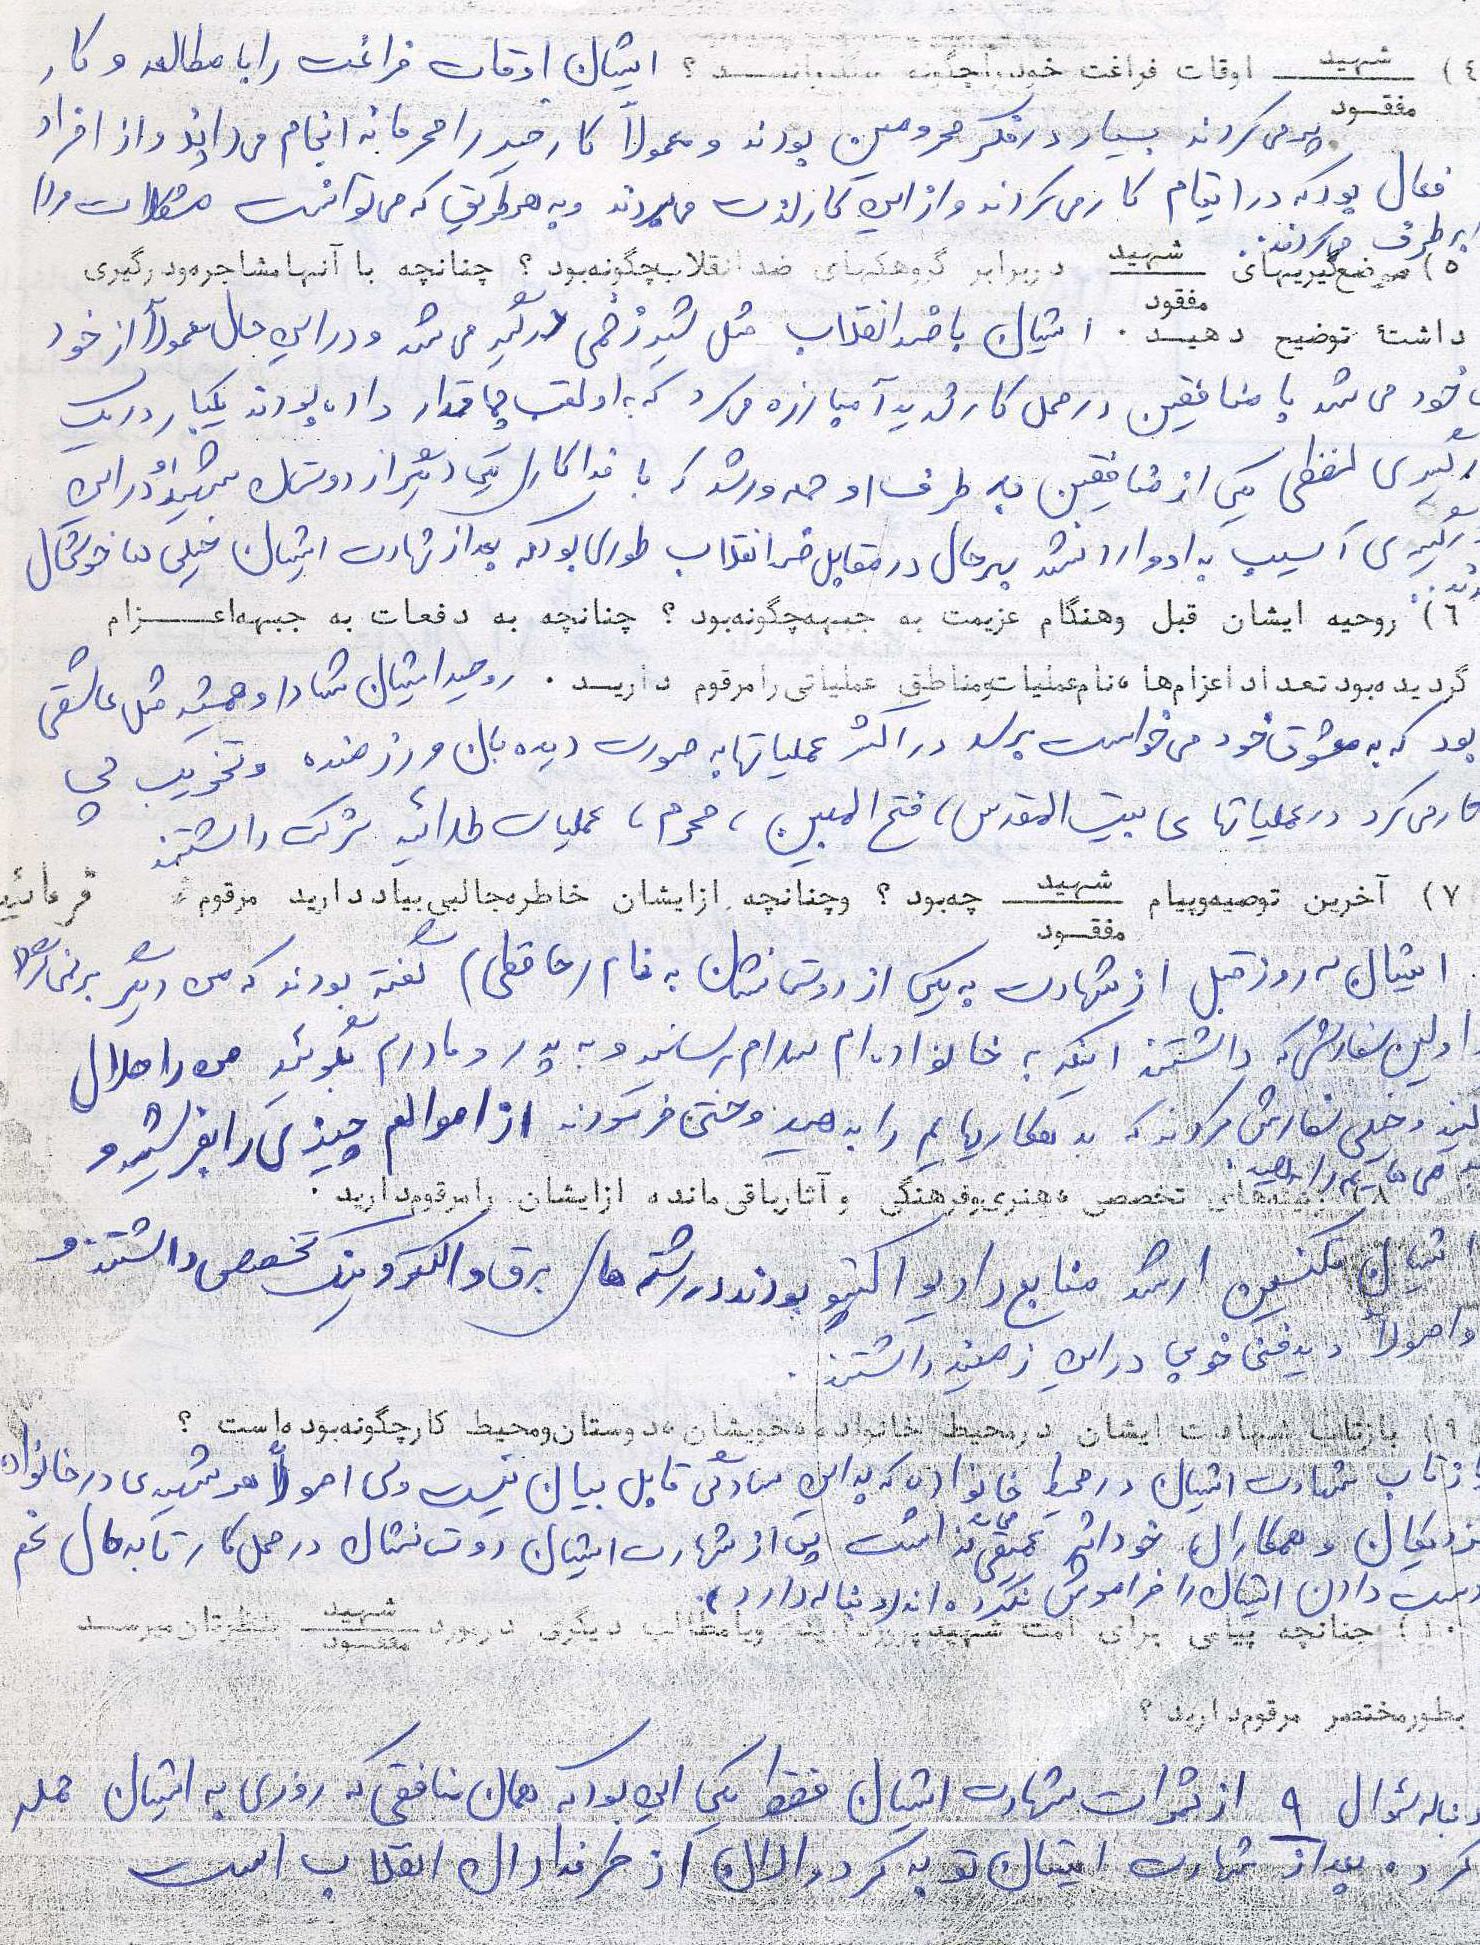 ٤) شهید اوقات فراغت خود را چگونه میگذرانید؟ ایشان اوقات فراغت را با مطالعه و کار
مفقود
پر می کردند بسیار در فکر محرومین بودند و معمولاً کار خیر را محرمانه انجام می دادند و از افراد
فعال بود که در ایتام کار می کردند و از این کار لذت می بردند و به هر طریق که می توانست مشکلات مردم
برطرف می کردند.
٥) موضعگیریهای شهید در برابر گروهکهای ضد انقلاب چگونه بود؟ چنانچه با آنها مشاجره و درگیری
مفقود
داشتهٔ توضیح دهید. ایشان با ضد انقلاب مثل شیر زخمی درگیر می شد و در این حال معمولاً از خود
بی خود می شد با منافقین در محل کار شدیداً مبارزه می کرد که به او لقب چماقدار داده بودند یکبار در یک
درگیری لفظی یکی از منافقین به طرف او حمله ور شد که با فداکاری یکی دیگر از دوستان شهید او در این
درگیری آسیب به او وارد نشد بهر حال در مقابل ضد انقلاب طوری بود که بعد از شهادت ایشان خیلی ها خوشحال
شدند.
٦) روحیه ایشان قبل وهنگام عزیمت به جبهه چگونه بود؟ چنانچه به دفعات به جبهه اعزام
گردیده بود تعداد اعزامها، نام عملیات و مناطق عملیاتی را مرقوم دارید. روحیه ایشان شاد و همیشه مثل عاشقی
بود که به معشوق خود می خواست برسد در اکثر عملیاتها به صورت دیده بان و رزمنده و تخریب چی
کار می کرد در عملیاتهای بیت المقدس، فتح المبین، محرم، عملیات طلائیه شرکت داشتند
٧) آخرین توصیه و پیام شهید چه بود؟ وچنانچه ازایشان خاطره جالبی بیاد دارید مرقوم فرمائید
مفقود
ایشان سه روز قبل از شهادت به یکی از دوستانشان به نام (حافظی) گفته بودند که من دیگر برنمی گردم
و اولین سفارشی که داشتند اینکه به خانواده ام سلام برسانید و به پدر و مادرم بگوئید من را حلال
کنید و خیلی سفارش می کردند که بدهکاریهایم را بدهید و حتی فرمودند از اموالم چیزی را بفروشید و
بدهی هایم را بدهید.
٨) جنبه های تخصص، هنری و فرهنگی و آثار باقی مانده ازایشان را مرقوم دارید.
ایشان تکنسین ارشد منابع رادیو اکتیو بودند در رشته های برق و الکترونیک تخصص داشتند و
و اصولاً دید فنی خوبی در این زمینه داشتند.
٩) بازتاب شهادت ایشان در محیط خانواده، خویشان، دوستان و محیط کار چگونه بوده است؟
بازتاب شهادت ایشان در محیط خانواده که به این سادگی قابل بیان نیست ولی اصولاً هر شهیدی در خانواده
نزدیکان و همکاران خود اثر عمیقی گذاشت پس از شهادت ایشان دوستانشان در محل کار تا به حال غم
از دست دادن ایشان را فراموش نکرده اند (دنباله دارد)
١٠) چنانچه پیامی برای امت شهید پرور دارید ویا مطالب دیگری در مورد شهید بنظرتان میرسد
مفقود
بطور مختصر مرقوم دارید؟
دنباله سوال ٩ از ثمرات شهادت ایشان فقط یکی این بود که همان منافقی که روزی به ایشان حمله
کرده بعد از شهادت ایشان توبه کرد و الان از طرفداران انقلاب است